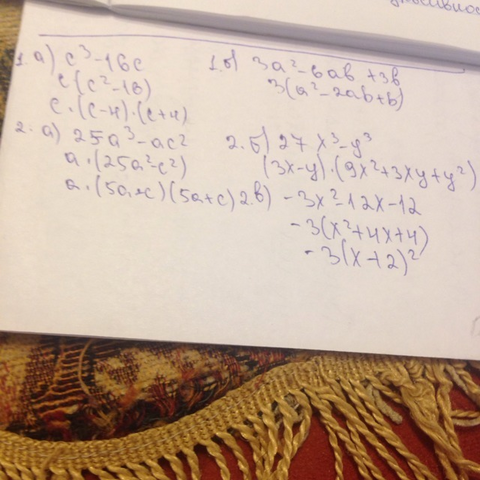 1. а) c³-16c
c(c²-16)
c·(c-4)·(c+4)
1.б) 3a²-6ab+3b
3(a²-2ab+b)
2. а) 25a³-ac²
a·(25a²-c²)
a·(5a-c)(5a+c)
2.б) 27x³-y³
(3x-y)·(9x²+3xy+y²)
2в) -3x²-12x-12
-3(x²+4x+4)
-3(x+2)²